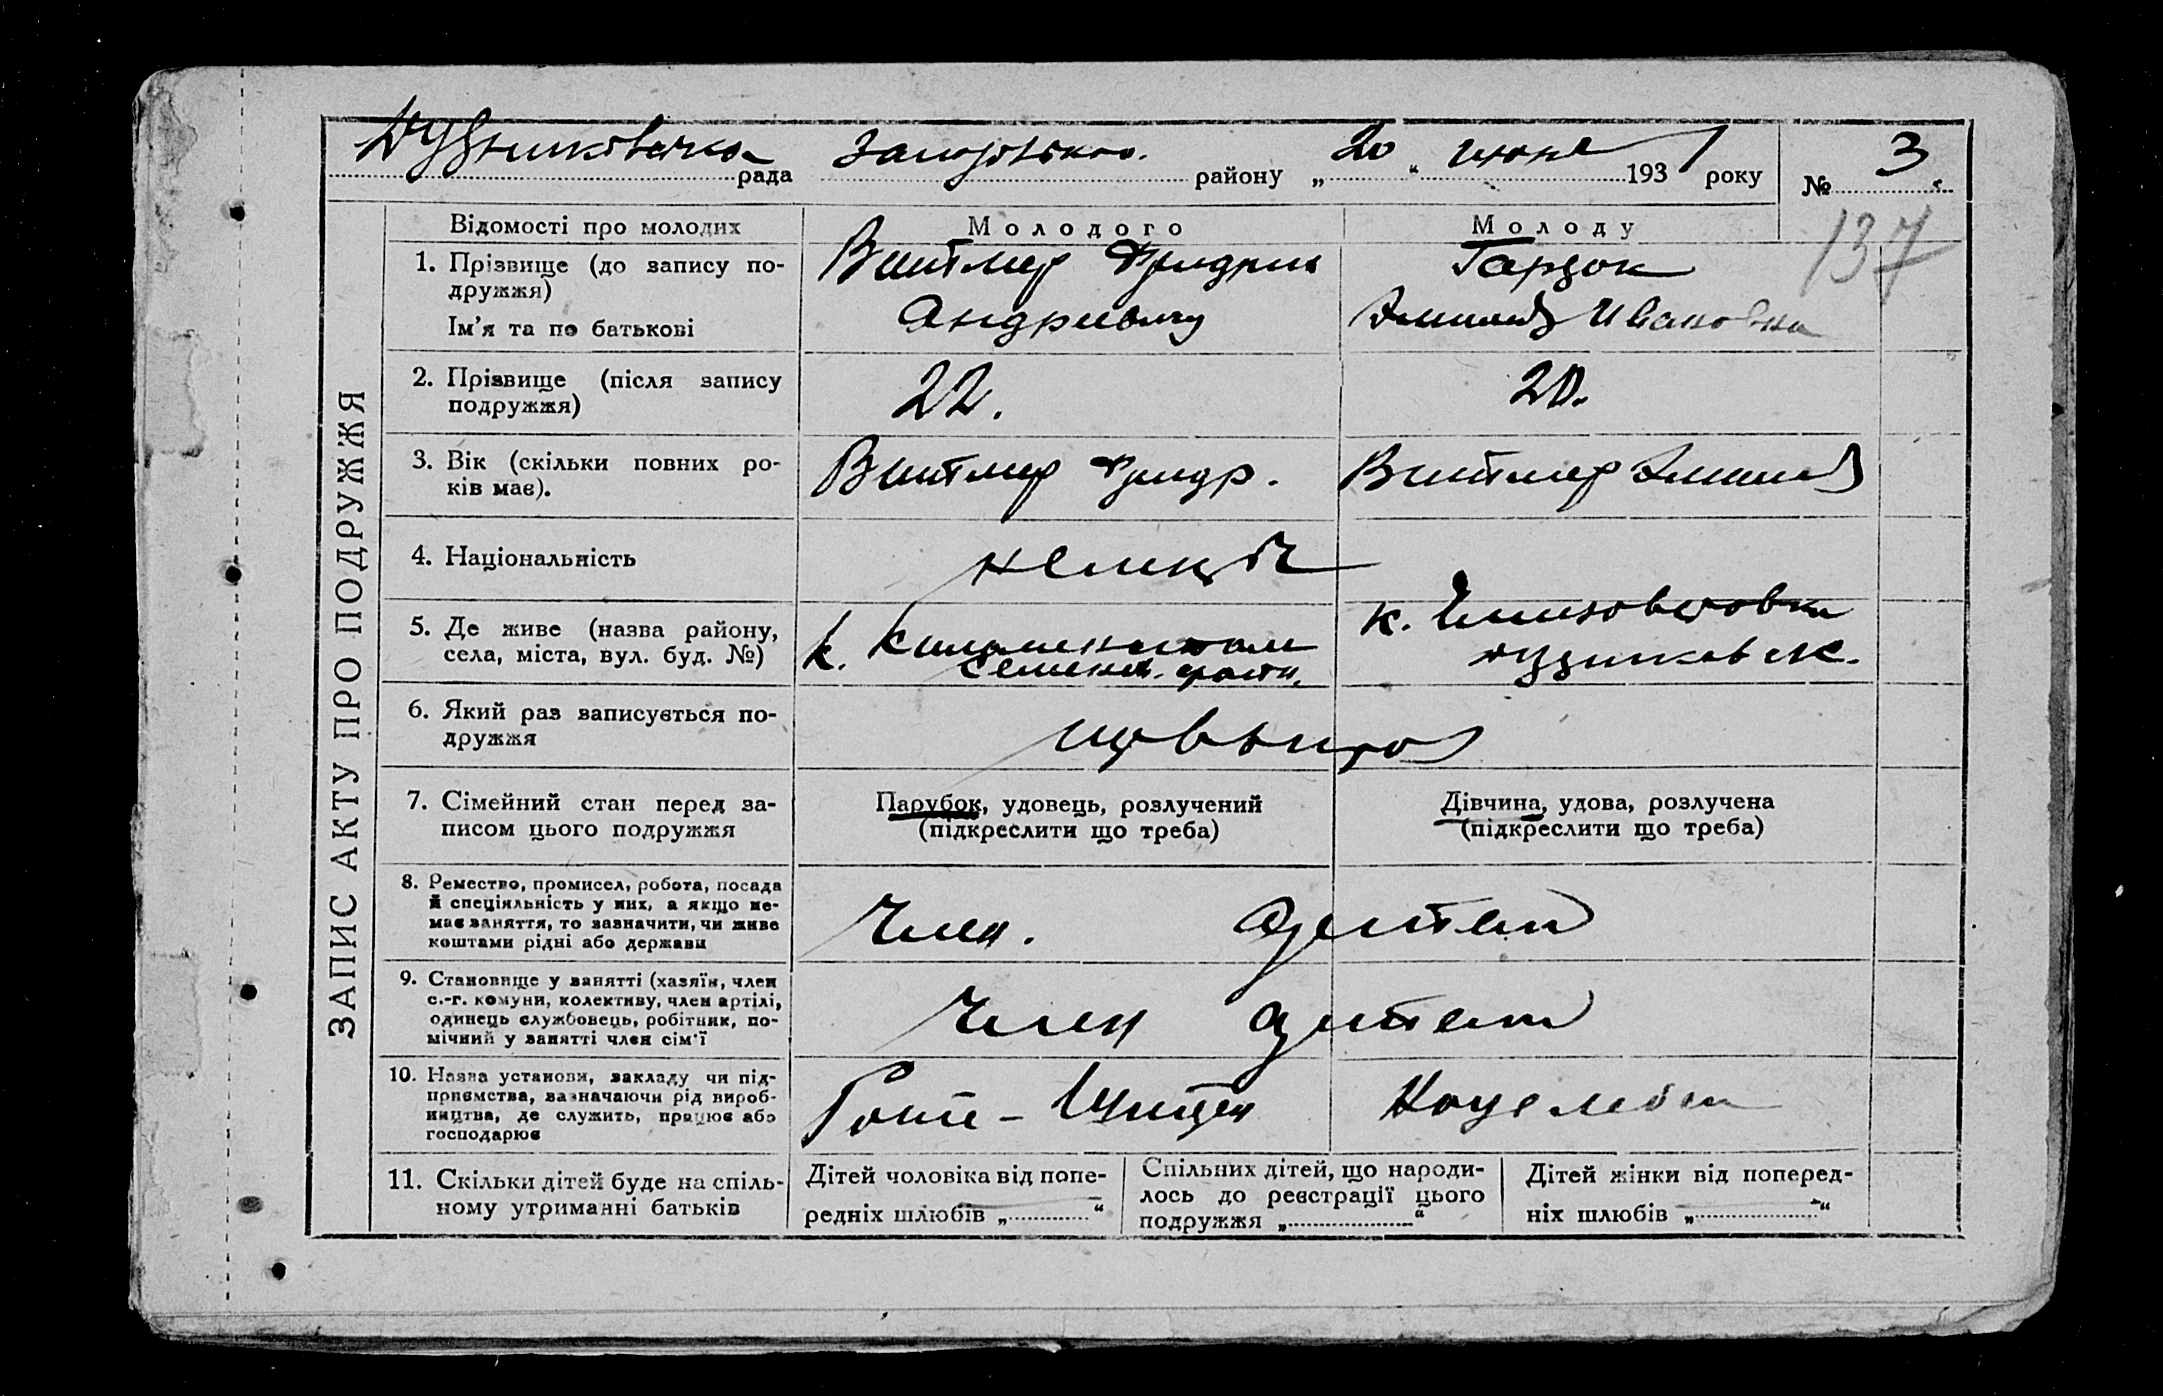 рада району „20“ июня 1931 року № 3.
137
ЗАПИС АКТУ ПРО ПОДРУЖЖЯ
Відомості про молодих
Молодого
Молоду
1. Прізвище (до запису по-
дружжя)
Ім'я та по батькові
Витмер Фридрих
Андреевич
Эмилия Ивановна
2. Прізвище (після запису
подружжя)
22.
20.
3. Вік (скільки повних ро-
ків має).
Витмер Фридр.
Витмер Эмилия
4. Національність
немцы
5. Де живе (назва району,
села, міста, вул. буд. №)
к.
к.
6. Який раз записується по-
дружжя
первый раз
7. Сімейний стан перед за-
писом цього подружжя
Парубок, удовець, розлучений
(підкреслити що треба)
Дівчина, удова, розлучена
(підкреслити що треба)
8. Ремество, промисел, робота, посада
й спеціяльність у них, а якщо не-
має заняття, то зазначити, чи живе
коштами рідні або держави
Член. артели
9. Становище у занятті (хазяїн, член
с.-г. комуни, колективу, член артілі,
одинець службовець, робітник, по-
мічний у занятті член сім'ї
Член артели
10. Назва установи, закладу чи під-
приємства, зазначаючи рід вироб-
ництва, де служить, працює або
господарює
11. Скільки дітей буде на спіль-
ному утриманні батьків
Дітей чоловіка від попе-
редніх шлюбів „ “
Спільних дітей, що народи-
лось до реєстрації цього
подружжя „ “
Дітей жінки від поперед-
ніх шлюбів „ “